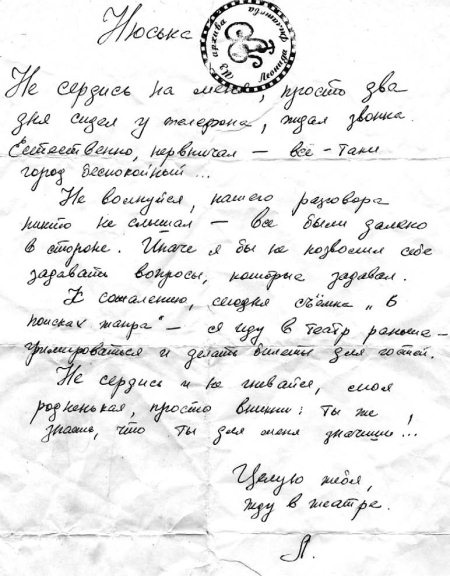 Нюська
Из архива Леонида Филатова
Не сердись на меня, просто два
дня сидел у телефона, ждал звонка.
Естественно, нервничал – всё-таки
город беспокойный...
Не волнуйся, нашего разговора
никто не слышал – все были далеко
в стороне. Иначе я бы не позволил себе
задавать вопросы, которые задавал.
К сожалению, сегодня съёмка „В
поисках жанра“ – я иду в театр раньше –
гримироваться и делать билеты для гостей.
Не сердись и не гневайся, моя
родненькая, просто вникни: ты же
знаешь, что ты для меня значишь...
Целую тебя,
жду в театре.
Л.